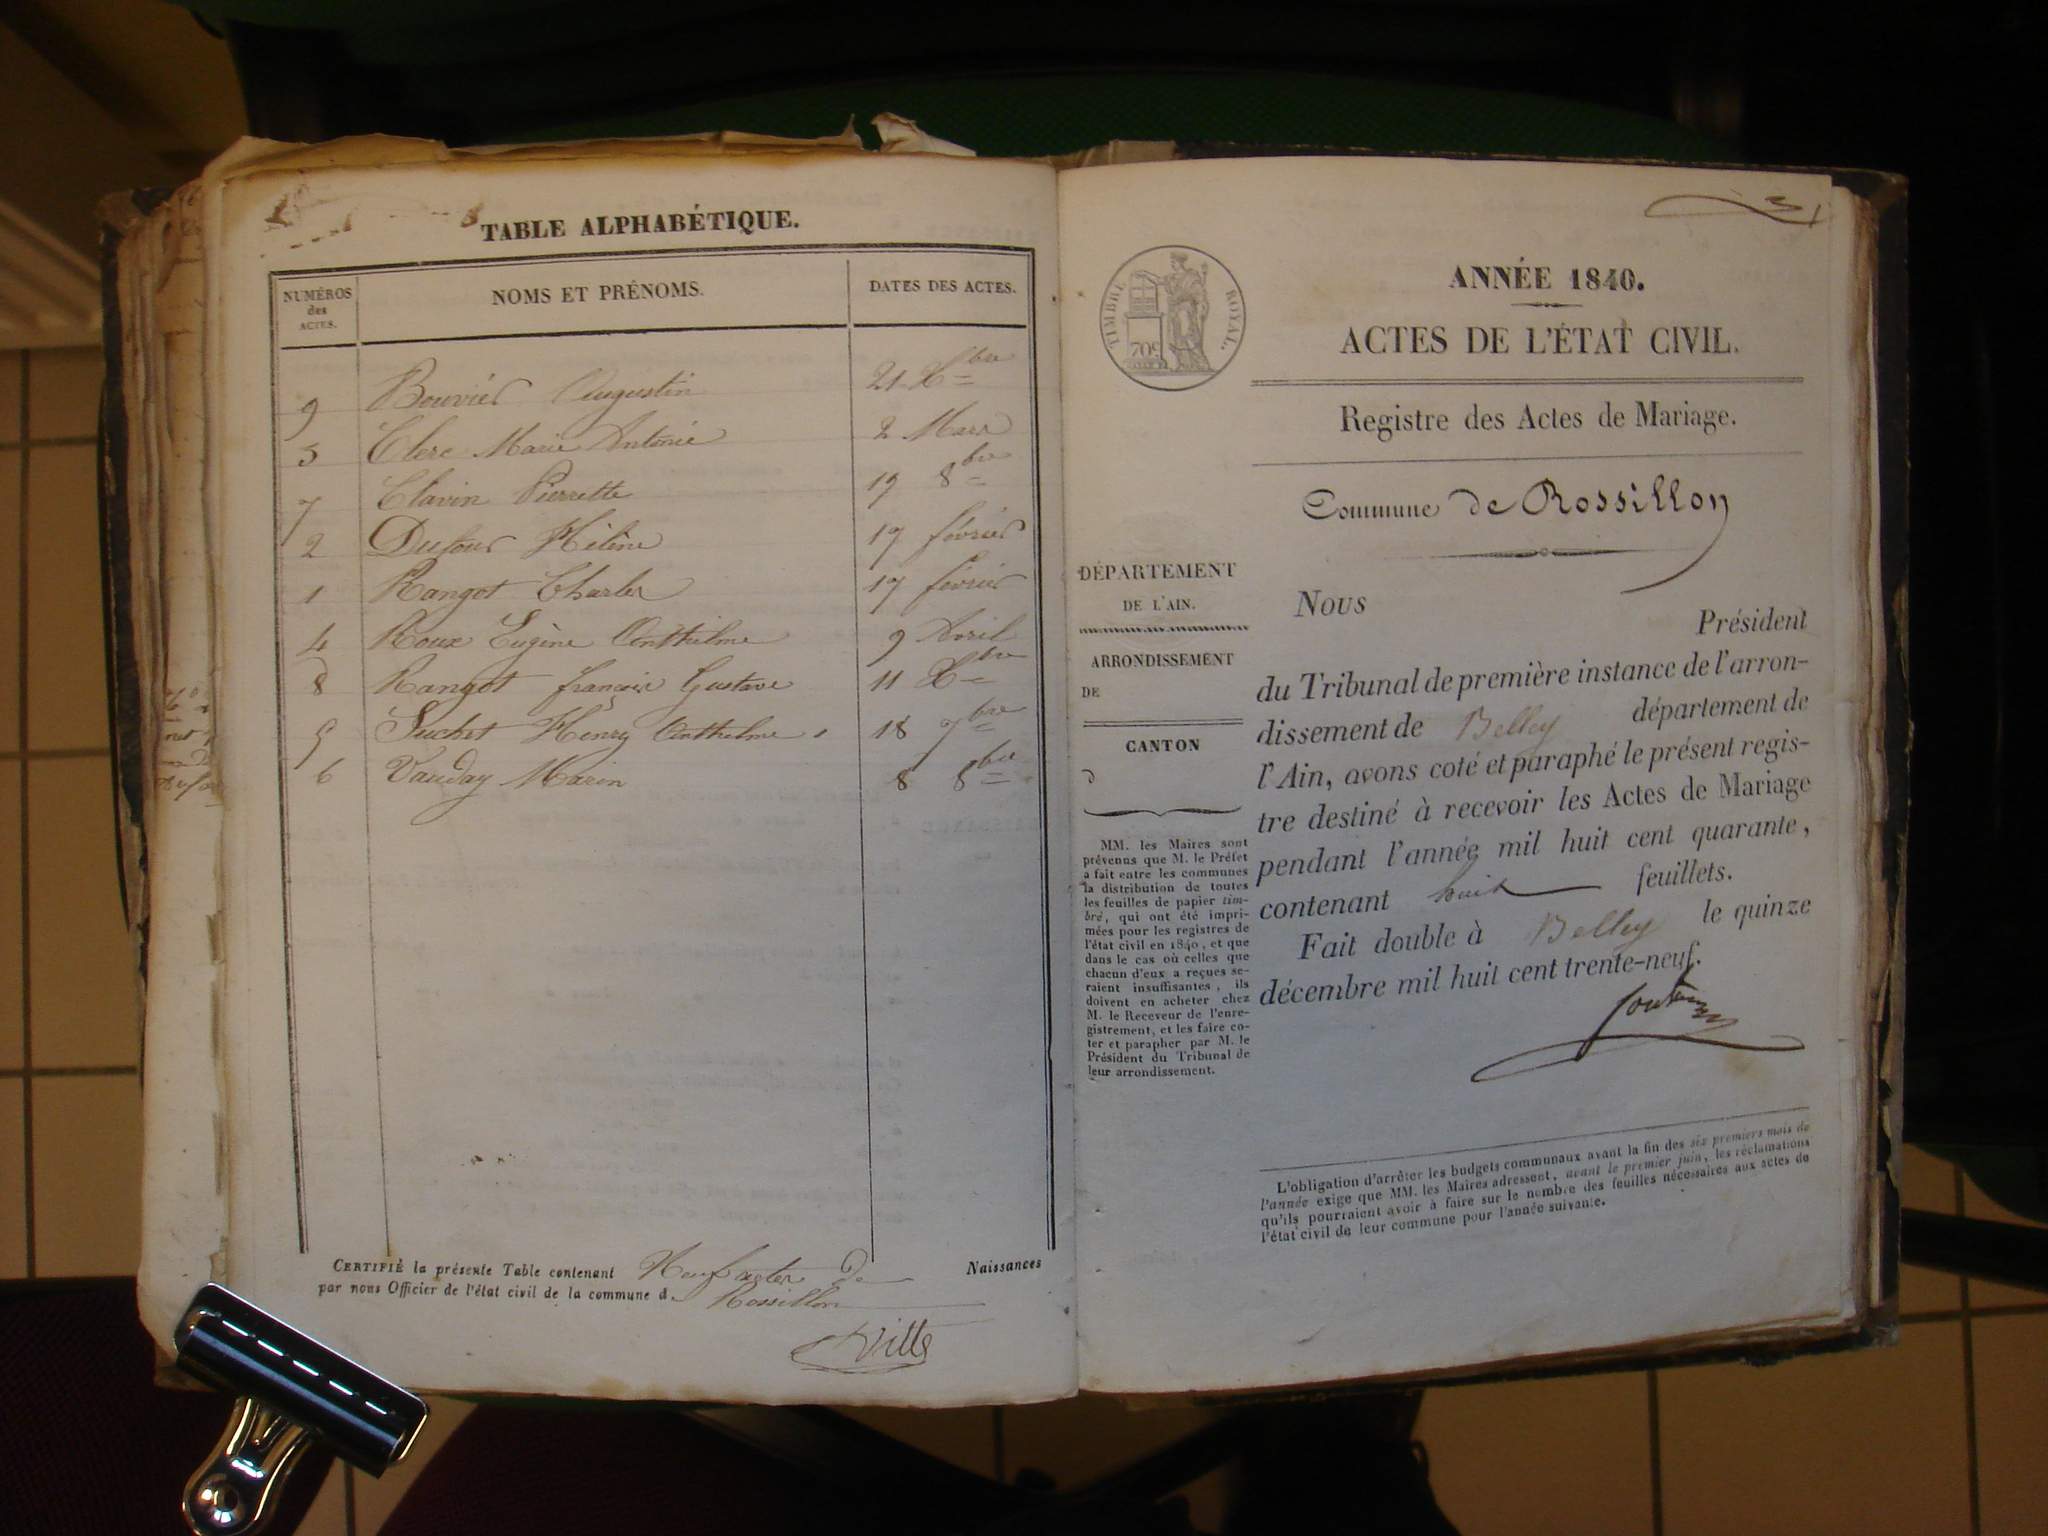 TABLE ALPHABÉTIQUE.
NUMÉROS des ACTES.
NOMS ET PRÉNOMS.
DATES DES ACTES.
9 Bouvier Augustin 21 Xbre
3 Clerc Marie Antonie 2 Mars
7 Clavin Pierrette 19 8bre
2 Dufour Hélène 17 février
1 Rangot Charles 17 février
4 Roux Eugène Anthelme 9 Avril
8 Rangot françois Gustave 11 Xbre
5 Suchet Henry Anthelme 18 7bre
6 Vauday Marin 8 8bre
CERTIFIÉ la présente Table contenant Neuf actes de Naissances
par nous Officier de l'état civil de la commune d. Rossillon
Ville
31
TIMBRE ROYAL.
70c
ANNÉE 1840.
ACTES DE L'ÉTAT CIVIL.
Registre des Actes de Mariage.
Commune de Rossillon
DÉPARTEMENT
DE L'AIN.
ARRONDISSEMENT
DE
CANTON
D
MM. les Maires sont
prévenus que M. le Préfet
a fait entre les communes
la distribution de toutes
les feuilles de papier tim-
bré, qui ont été impri-
mées pour les registres de
l'état civil en 1840, et que
dans le cas où celles que
chacun d'eux a reçues se-
raient insuffisantes, ils
doivent en acheter chez
M. le Receveur de l'enre-
gistrement, et les faire co-
ter et parapher par M. le
Président du Tribunal de
leur arrondissement.
Nous
Président
du Tribunal de première instance de l'arron-
dissement de Belley département de
l'Ain, avons coté et paraphé le présent regis-
tre destiné à recevoir les Actes de Mariage
pendant l'année mil huit cent quarante,
contenant huit feuillets.
Fait double à Belley le quinze
décembre mil huit cent trente-neuf.
L'obligation d'arrêter les budgets communaux avant la fin des six premiers mois de
l'année exige que MM. les Maires adressent, avant le premier juin, les réclamations
qu'ils pourraient avoir à faire sur le nombre des feuilles nécessaires aux actes de
l'état civil de leur commune pour l'année suivante.